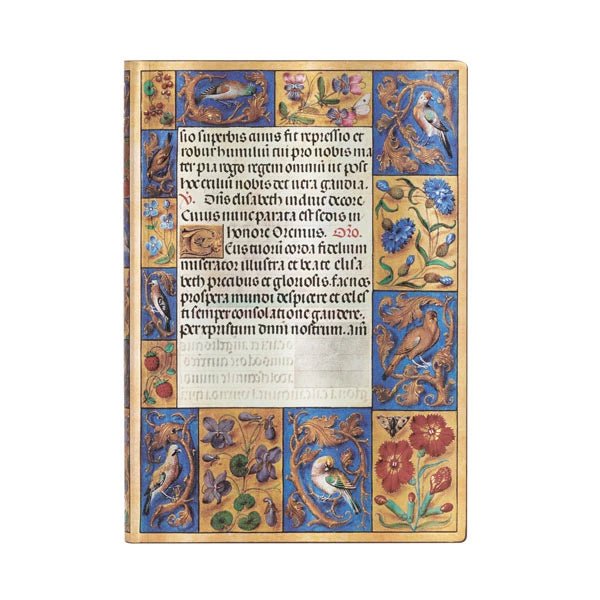 sio superbis cuius fit repressio et
robur humiliū cui pro nobis ma
ter pia rogo regem omniū ut post
hoc exiliū nobis det vera gaudia.
V. Dn̄s elisabeth induit decore.
Cuius nunc parata est sedis in
honore Oremus. Oro.
Deus tuorū corda fidelium
miserator illustra et beate elisa
beth precibus et gloriosis. fac nos
prospera mundi despicere et celes
ti semper consolatione gaudere.
per xpristum dn̄m nostrum. am̄